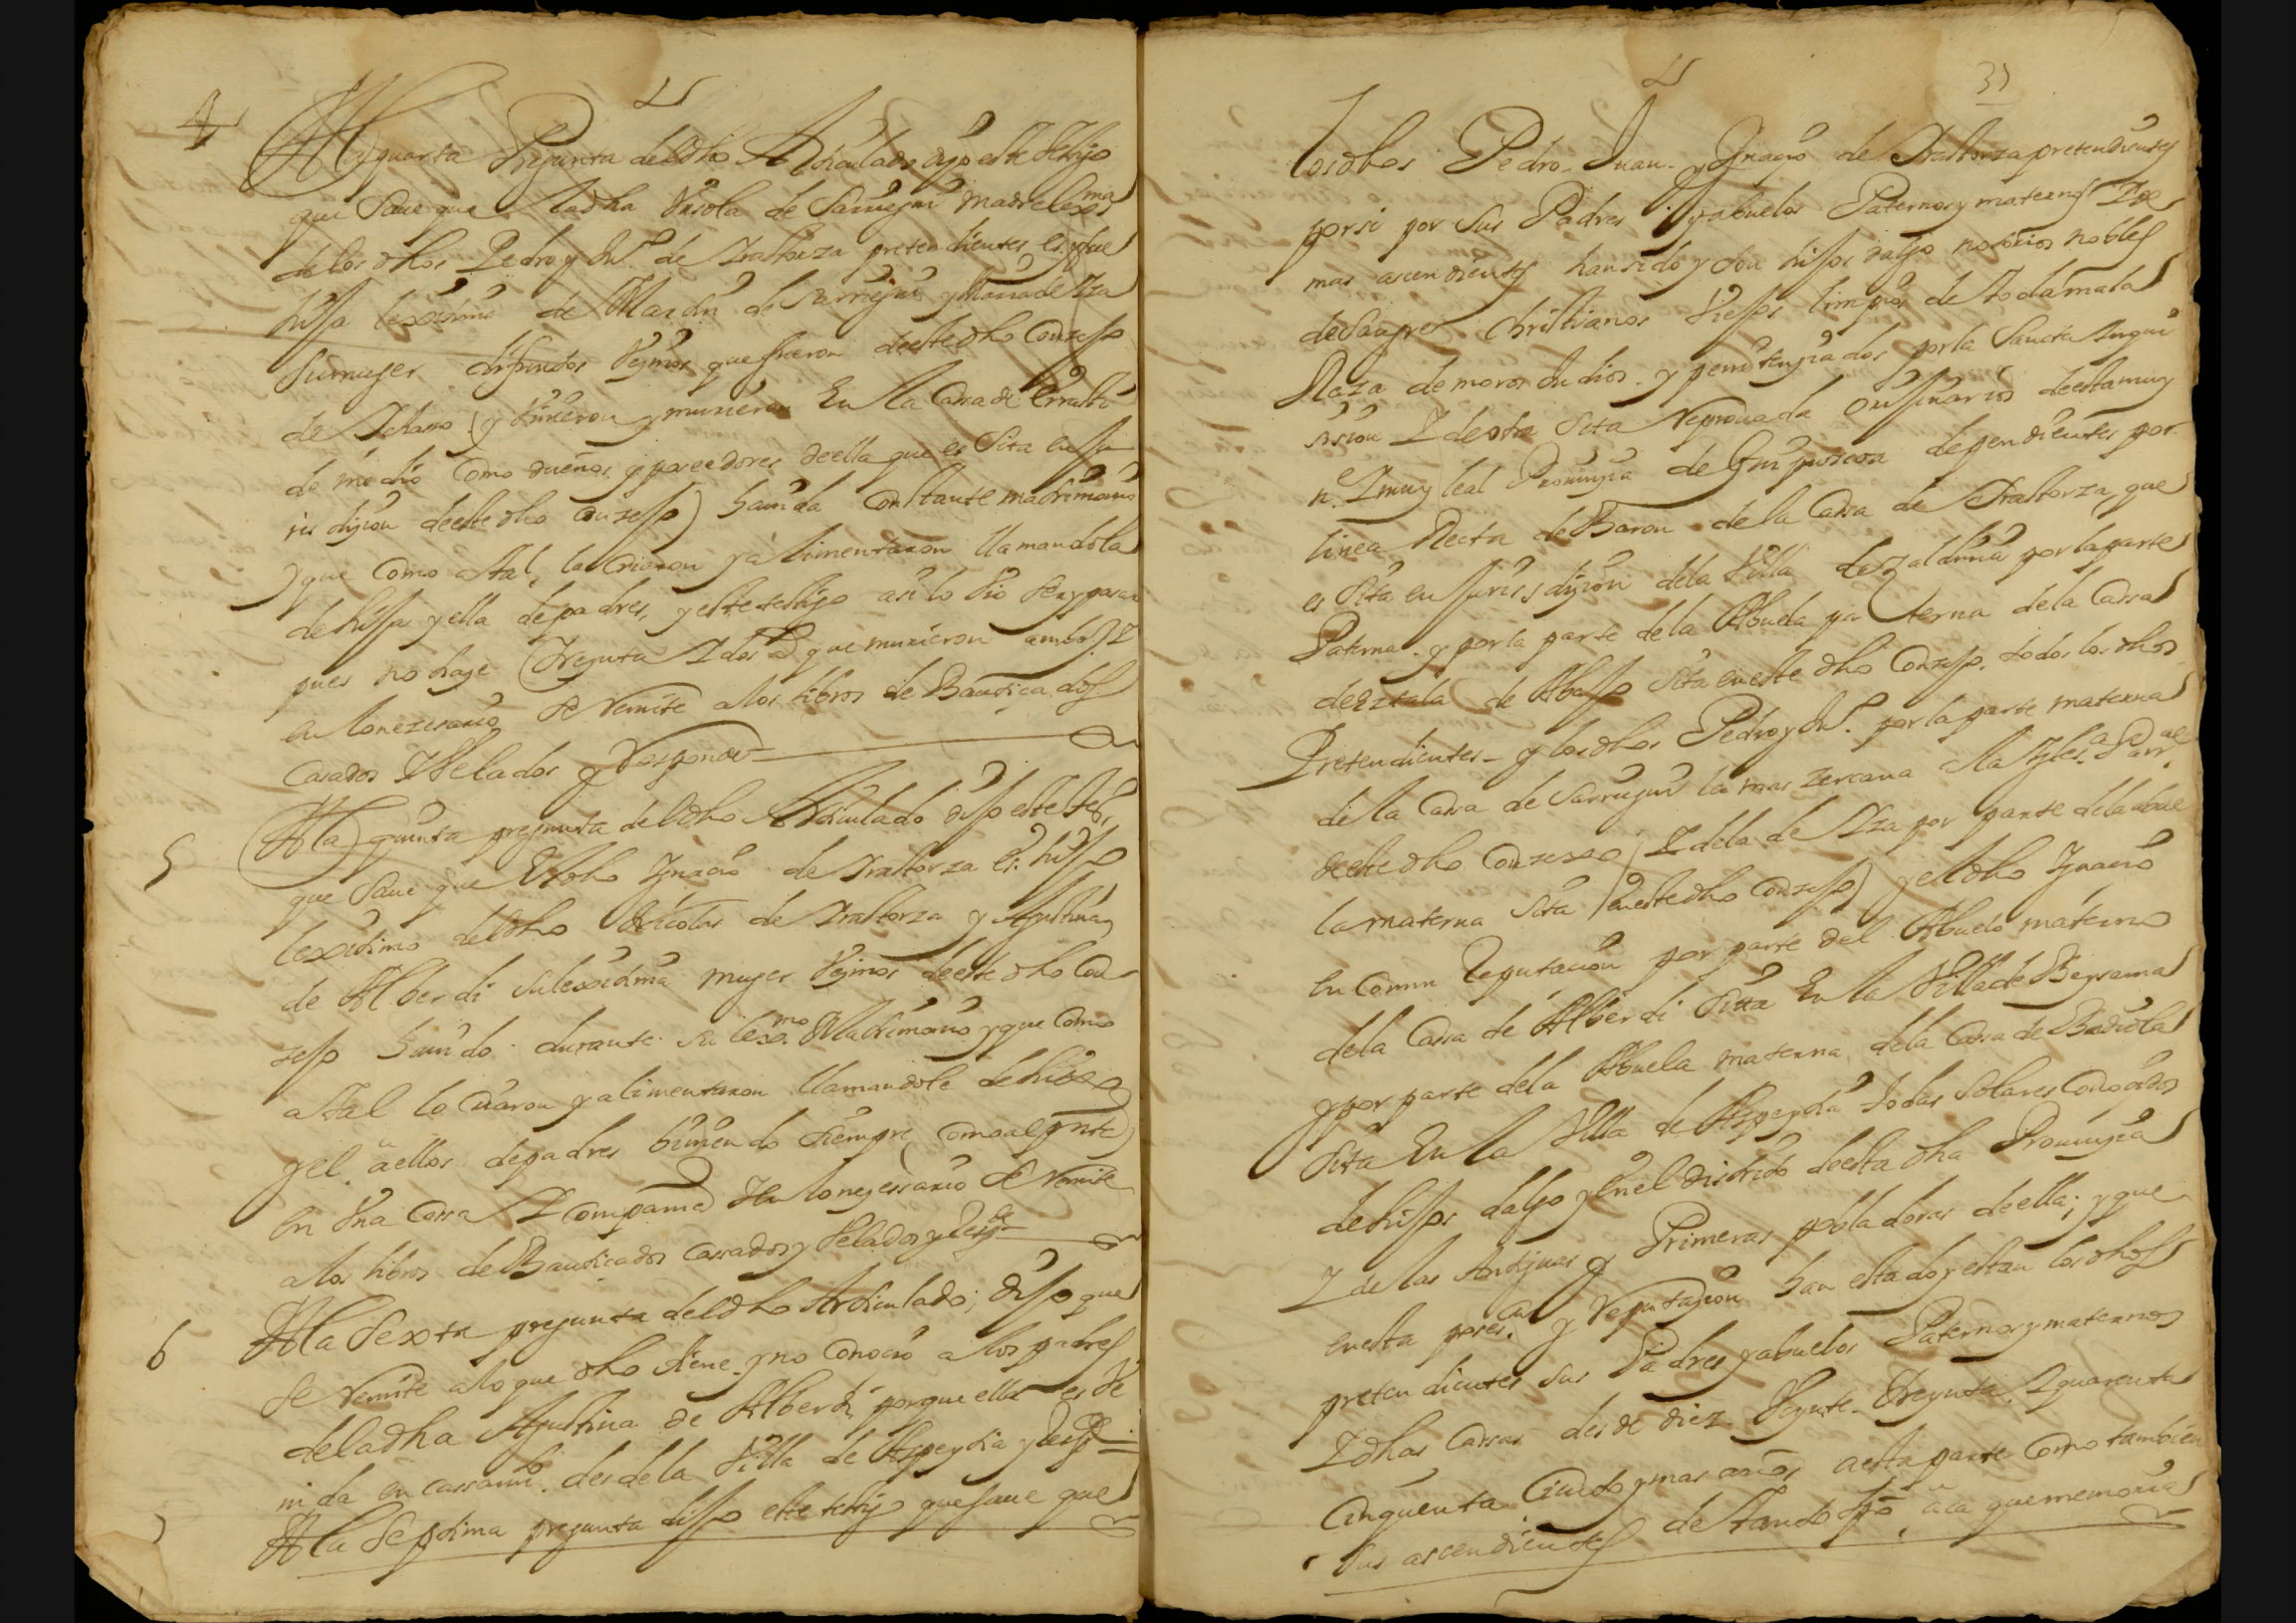 4
A la quarta Pregunta del dho Articulado dijo este testigo
que saue que la dha Ursola de Sarruegui madre lexma
de los dhos Pedro y Ju.º de Iraltorza pretendientes es y fue
hija lexitima de Martin de Sarruegui y Maria de Iza
su muger difuntos vezinos que fueron deeste dho Conzejo
de y viuieron y murieron En la Cassa de
de medio Como dueños y poseedores deella que es Sita en su
jurisdizion deeste dho Conzejo) hauida Constante matrimonio
y que Como a tal, la Criaron y alimentaron llamandola
de hija y ella de padres, y este testigo assi lo vio ser y pasar
pues no haze treynta I dos a.s que murieron ambos. I
en lo nezesario se remite a los libros de Bautiçados
Casados I Velados y responde
5
A la quinta pregunta del dho Articulado dijo este tes.º
que saue que El dho Ygnacio de Iraltorza es hijo
lexitimo del dho Nicolas de Iraltorza y Agustina
de Alberdi su lexitima muger Vezinos deeste dho Con
zejo hauido durante su lexmo Matrimonio y que Como
a tal lo Criaron y alimentaron llamandole de hixo
y el aellos de padres biuiendo siempre Como al pnte
en Vna Cassa I Compania I en lo nezessario se remite
a los libros de Bautizados Cassados y Velados y Resp.de
6
A la Sexta pregunta del dho Articulado; dijo que
se remite a lo que dho tiene y no Conocio a los padres
de la dha Agustina de Alberdi porque ella es ve
nida en cassami.º desde la Villa de Azpeytia y Resp.
A la Septima pregunta dijo este testigo que saue que
31
los dhos Pedro Juan y Ygnacio de Iraltorza pretendientes
por si por sus Padres y abuelos Paternos y maternos I de
mas asendientes han sido y son hijos dalgo notorios nobles
de Sangre Christianos Viejos limpios de toda mala
Raza de moros Judios y penitenziados por la Sancta Inqui
sision I de otra Seta Reprouada Orijinarios deesta muy
n.e I muy leal Prouinzia de Guipuscoa dependientes por
linea Recta de Baron de la Cassa de Iraltorza que
es Sita en Jurisdizion de la Villa de Zaldiuia por la parte
Paterna y por la parte de la Abuela paterna de la Cassa
de Eztala de Abajo Sita eneste dho Conzejo. todos los dhos
Pretendientes y los dhos Pedro y Ju.º por la parte materna
de la Cassa de Sarruegui la mas Zercana a la Yglesia Parr.al
deeste dho Conzexo) I de la de Iza por parte de la abue
la materna Sita eneste dho Conzejo) y el dho Ygnacio
en Comun Reputacion por parte del Abuelo materno
de la Cassa de Alberdi Sitta En la Villa de Beyzama
y por parte de la Abuela materna de la Cassa de Badiola
Sita En la Villa de Azpeytia todas Solares Conozidos
de hijos dalgo y en el distrito deesta dha Prouinzia
I de las Antiguas y Primeras pobladoras deella; y que
enesta poses.on y Reputazion han estado y estan los dhos
pretendientes sus Padres y abuelos Paternos y maternos
I dhas Cassas desde diez Veynte Treynta I quarenta
Cinquenta Ciento y mas años aesta parte Como tambien
sus ascendientes de tanto tpo aca que memoria